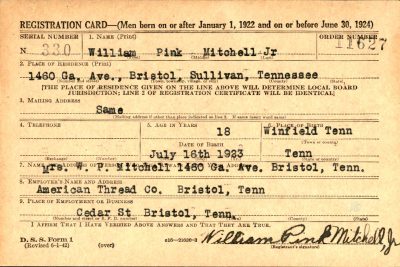 REGISTRATION CARD—(Men born on or after January 1, 1922 and on or before June 30, 1924)
SERIAL NUMBER 1. NAME (Print) ORDER NUMBER
N 330 William Pink Mitchell Jr 11627
(First) (Middle) (Last)
2. PLACE OF RESIDENCE (Print)
1460 Ga. Ave., Bristol, Sullivan, Tennessee
[THE PLACE OF RESIDENCE GIVEN ON THE LINE ABOVE WILL DETERMINE LOCAL BOARD
JURISDICTION; LINE 2 OF REGISTRATION CERTIFICATE WILL BE IDENTICAL]
3. MAILING ADDRESS
Same
[Mailing address if other than place indicated on line 2. If same insert word same]
4. TELEPHONE 5. AGE IN YEARS 6. PLACE OF BIRTH
18 Winfield Tenn
DATE OF BIRTH (Town or county)
July 16th 1923 Tenn
(Exchange) (Number) (Mo.) (Day) (Yr.) (State or country)
7. NAME AND ADDRESS OF PERSON WHO WILL ALWAYS KNOW YOUR ADDRESS
Mrs. W. P. Mitchell 1460 Ga. Ave. Bristol, Tenn.
8. EMPLOYER'S NAME AND ADDRESS
American Thread Co. Bristol, Tenn
9. PLACE OF EMPLOYMENT OR BUSINESS
Cedar St. Bristol, Tenn.
(Number and street or R. F. D. number) (Town) (County) (State)
I AFFIRM THAT I HAVE VERIFIED ABOVE ANSWERS AND THAT THEY ARE TRUE.
D. S. S. Form 1
(Revised 6-1-42) (over) William Pink Mitchell, Jr
(Registrant's signature)